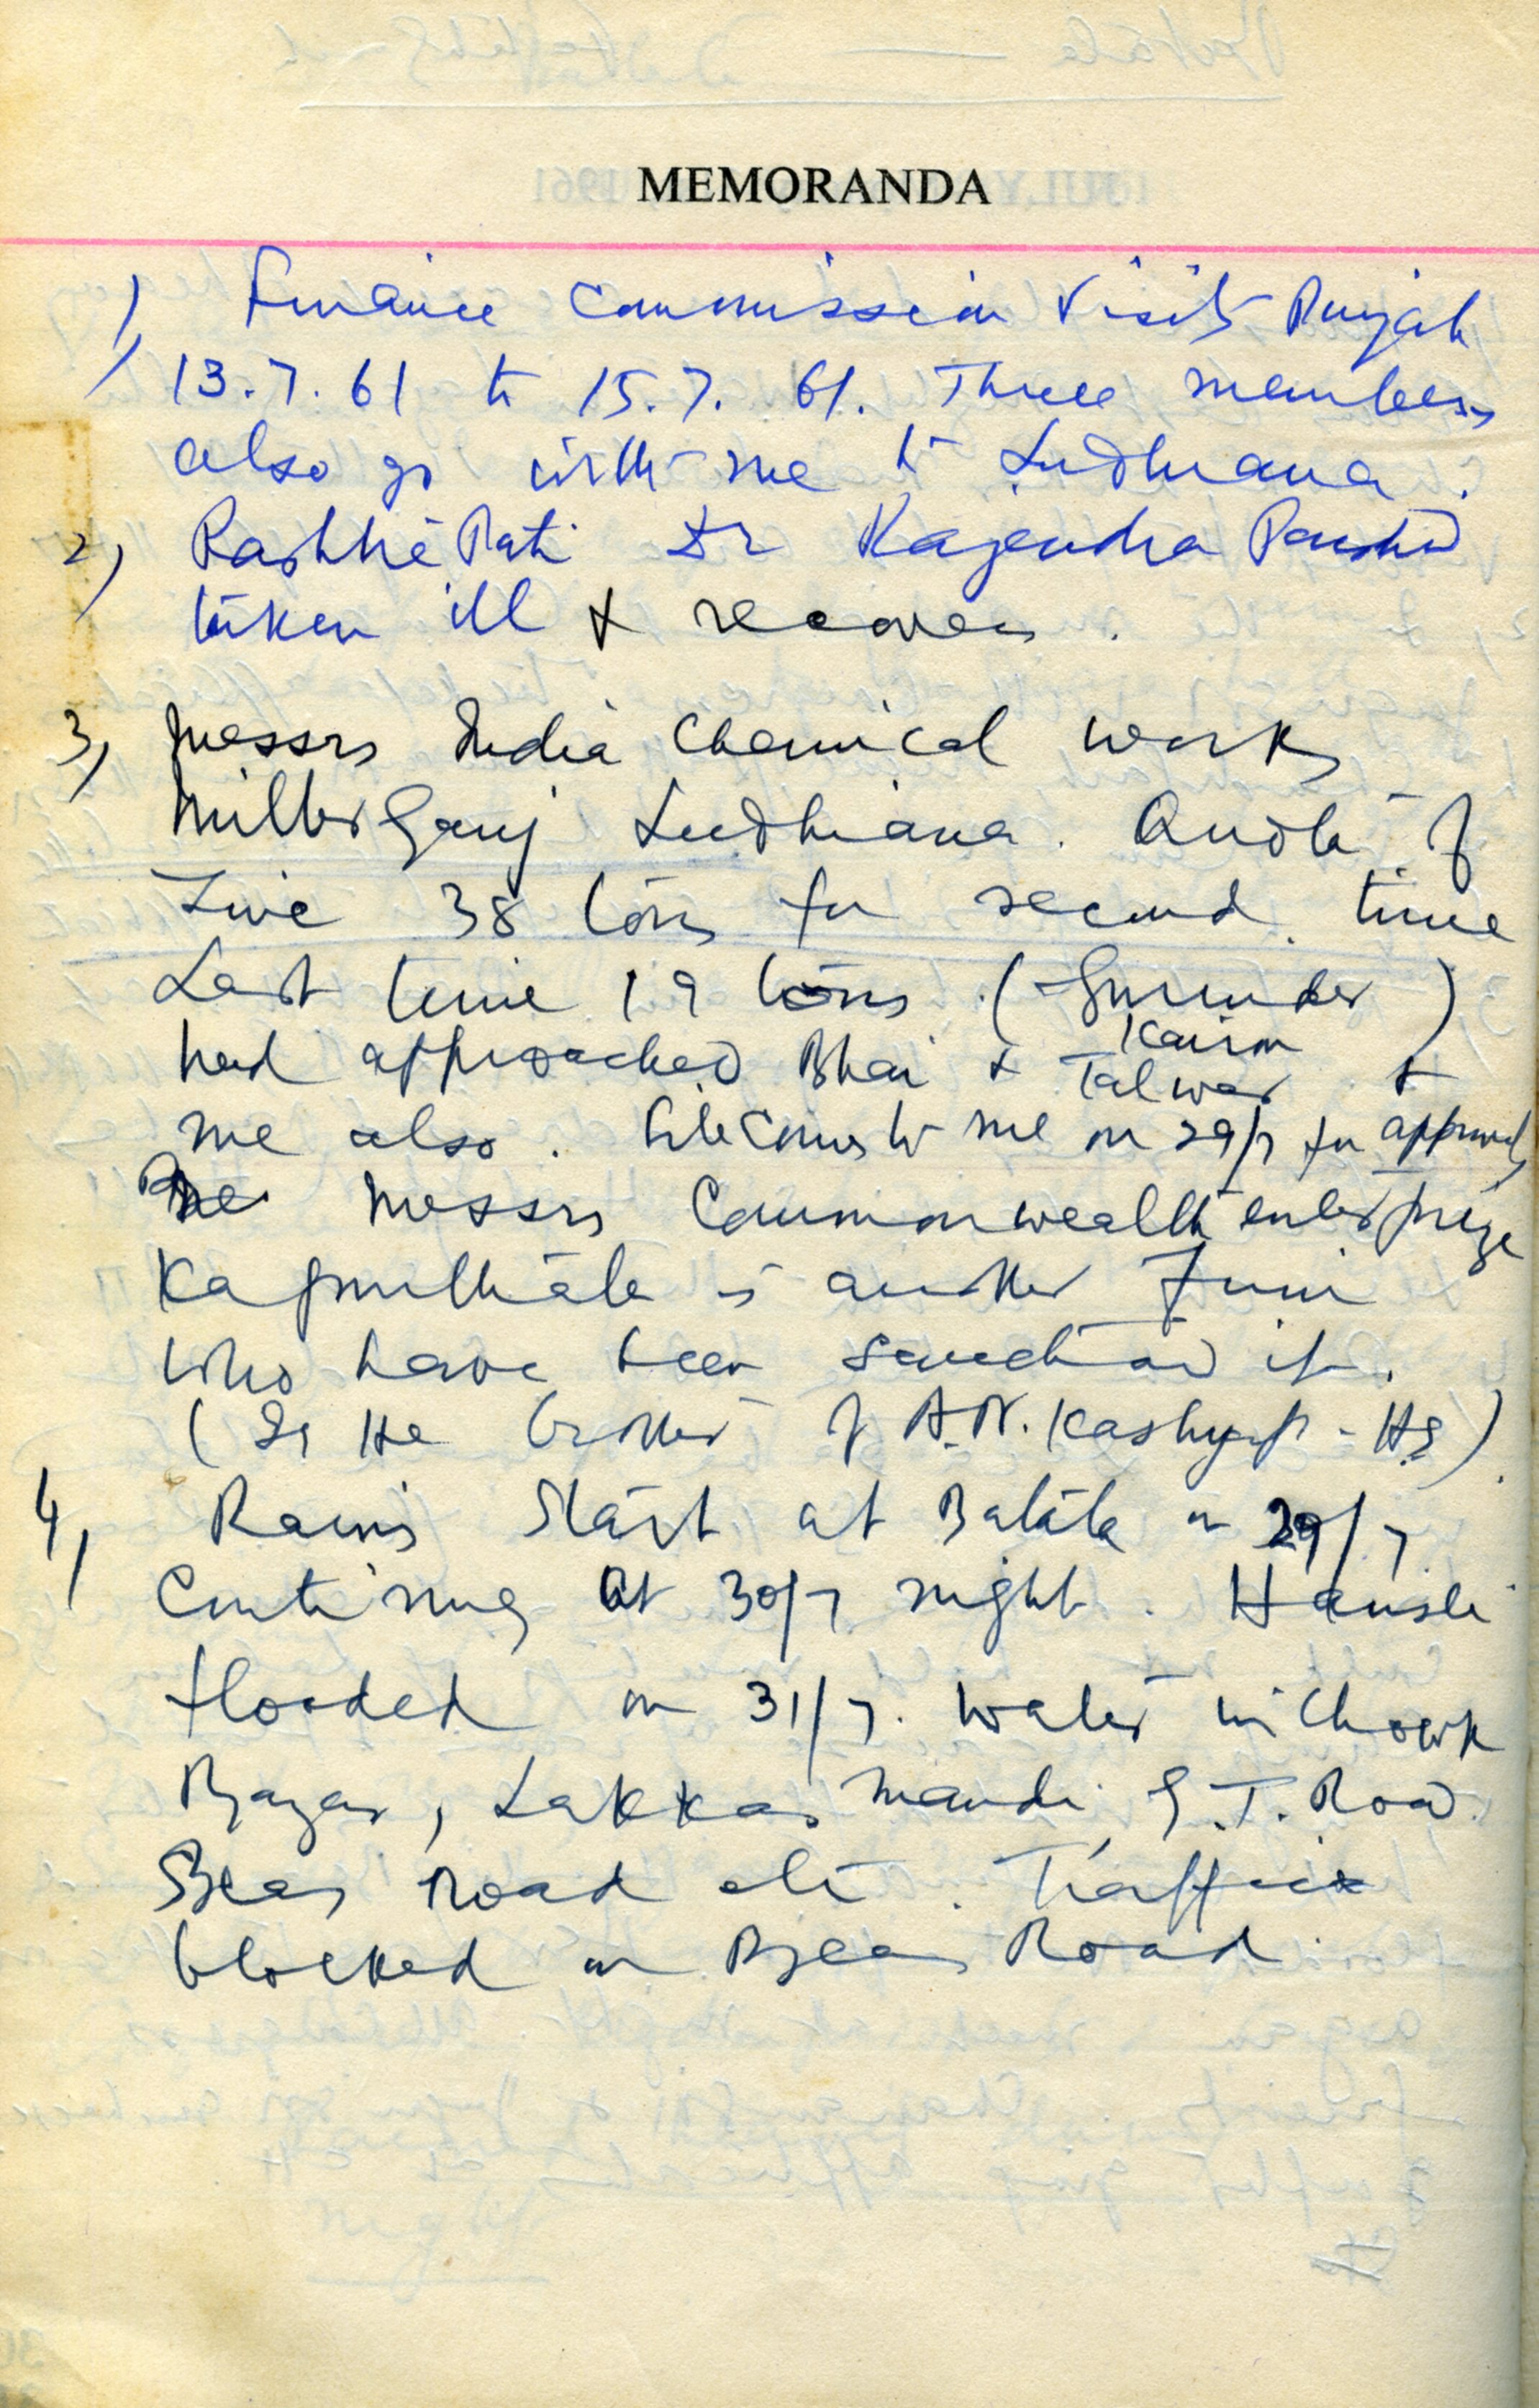 MEMORANDA
1) Finance Commission visits Punjab
13.7.61 to 15.7.61. Three members
also go with me to Ludhiana.
2) RashtriPati Dr Rajendra Parshad
taken ill & recovers.
3) Messrs India Chemical works
MillerGanj Ludhiana. Quota of
Zinc 38 tons for second time
Last time 19 tons (Surinder Kairon)
had approached Bhai & Talwar &
me also. File comes to me on 29/7 for approval
Messrs Commonwealth enterprize
Kapurthala is another Firm
who have been sanctioned it.
(Is He brother of A.N. Kashyap - HS)
4) Rains Start at Batala on 29/7
Continues at 30/7 night. Hansli
flooded on 31/7. Water in Chowk
Bazar, Lakkar mandi G.T. Road
Beas Road etc. Traffic
blocked on Beas Road.